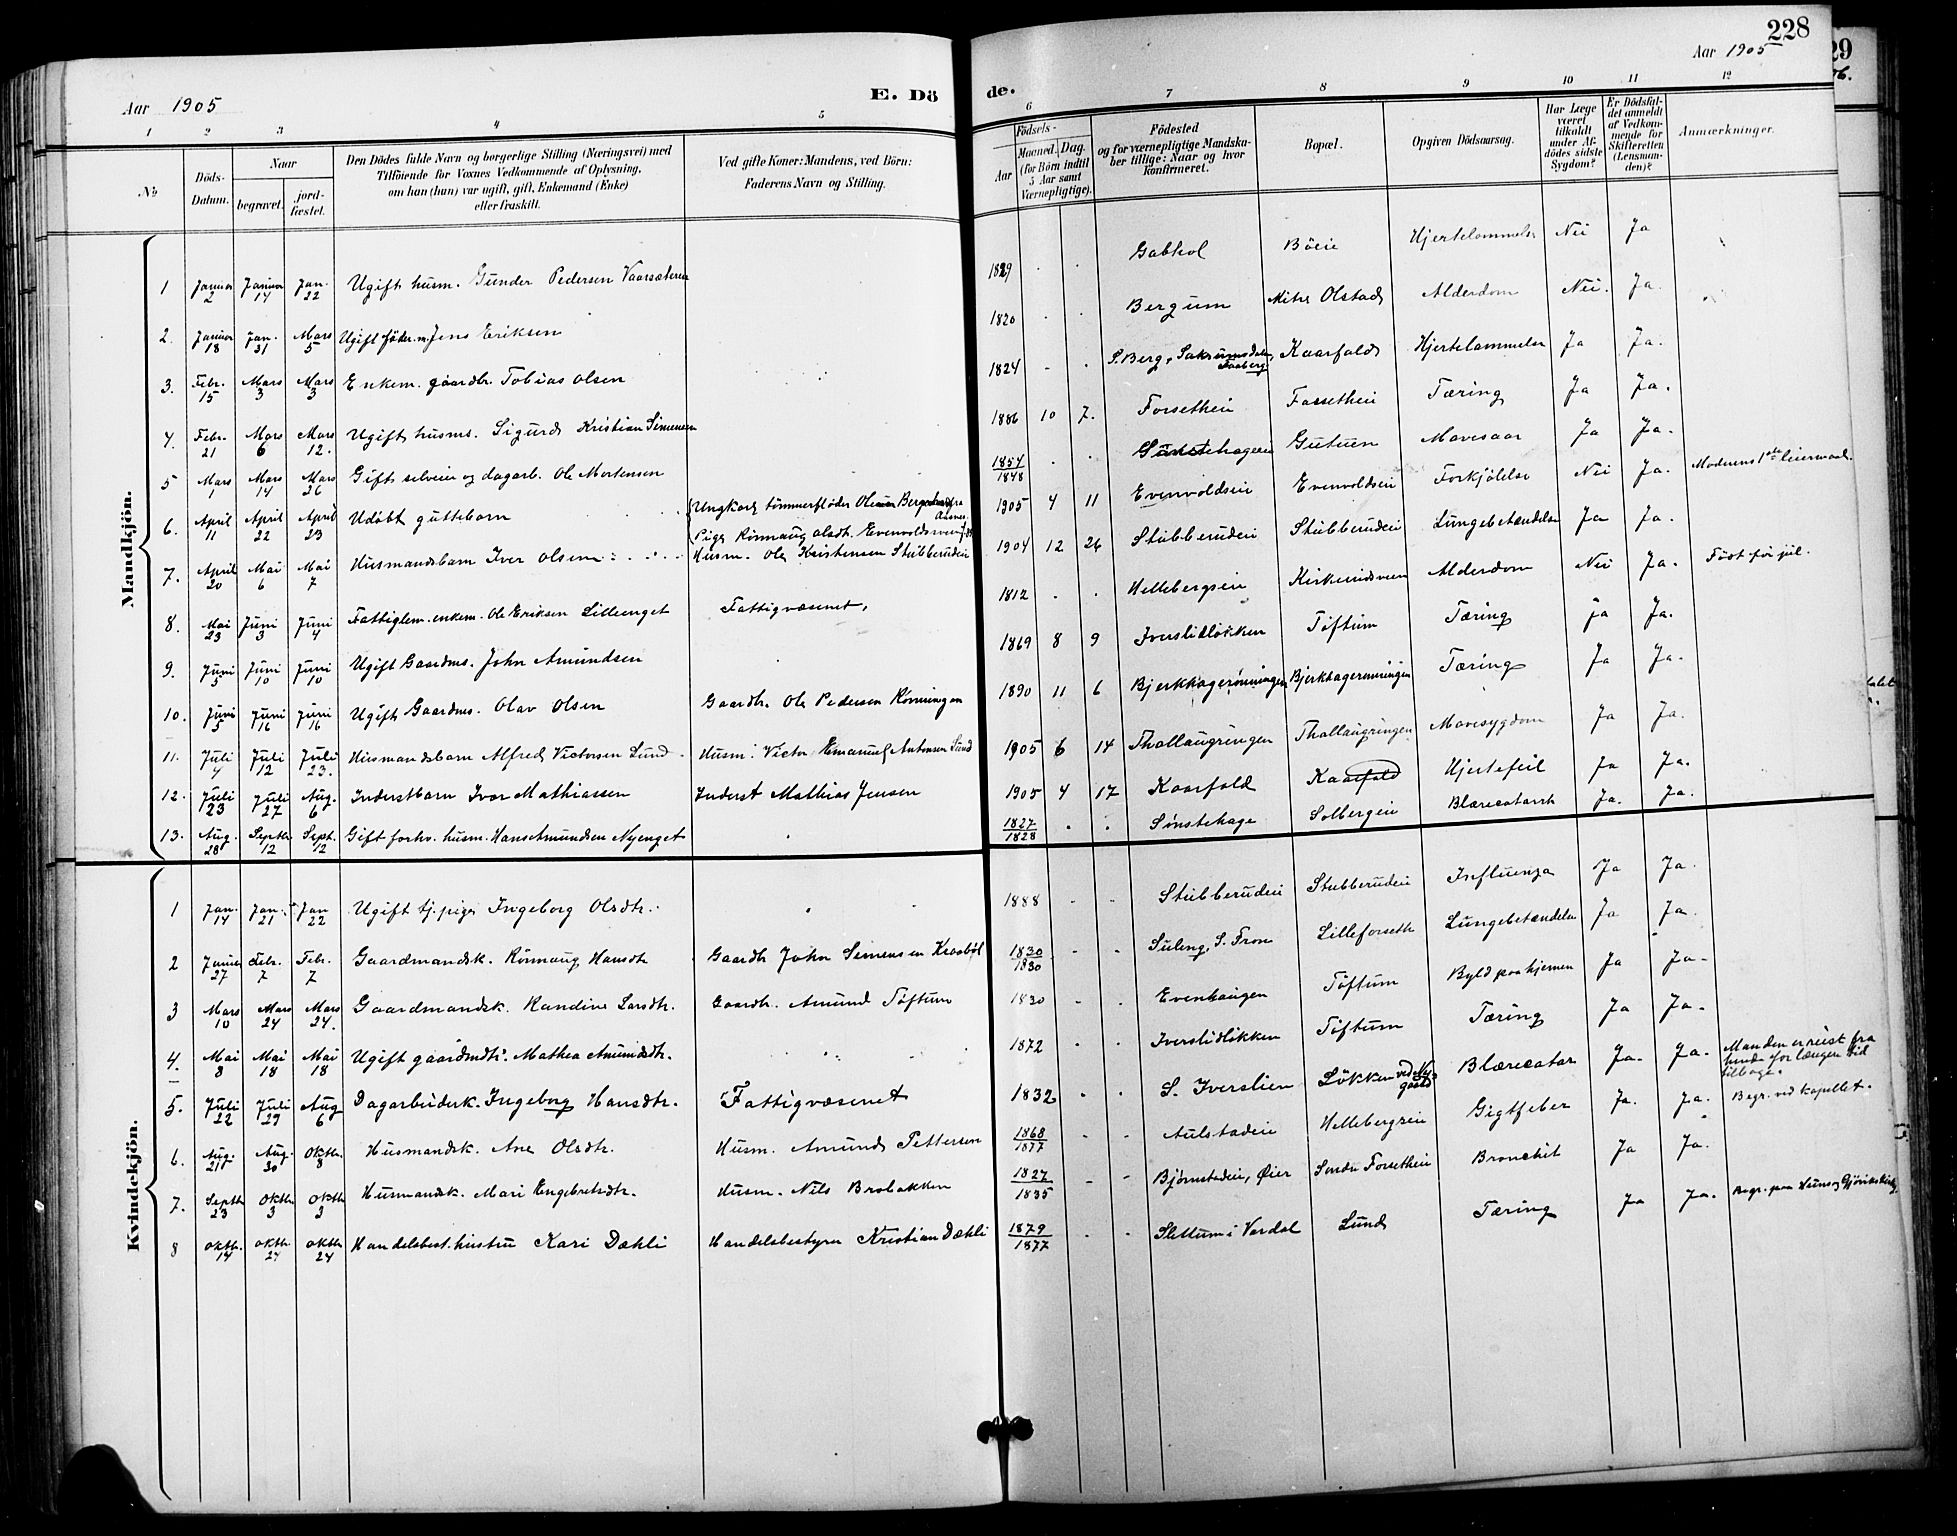 228
Aar 1905
29
Aar 1905
E. Dö
de.
1 2 3 4 5 6 7 8 9 10 11 12
No
Döds-Datum.
Naar
begravet.
jord-fæstet.
Den Dödes fulde Navn og borgerlige Stilling (Næringsvei) med
Tilföiende for Voxnes Vedkommende af Oplysning,
om han (hun) var ugift, gift, Enkemand (Enke)
eller fraskilt.
Ved gifte Koner: Mandens, ved Börn:
Faderens Navn og Stilling.
Födsels-
Aar
Maaned. Dag.
(for Börn indtil
5 Aar samt
Værnepligtige).
Födested
og for værnepligtige Mandska-
ber tillige: Naar og hvor
konfirmeret.
Bopæl.
Opgiven Dödsaarsag.
Har Læge
været
tilkaldt
under Af-
dödes sidste
Sygdom?
Er Dödsfal-
det anmeldt
af Vedkom-
mende for
Skifteretten
(Lensman-
den)?
Anmærkninger.
Mandkjön.
1 Januar 2 Januar 14 Jan. 22 Ugift husm. Gunder Pedersen Vaarsæteren 1829 Gabhol Böeie Hjertelammelse Nei Ja
2. Januar 18 Jan. 31 Mars 5 Ugift föder.m. Jens Eriksen 1820 Bergum Nitr Olstad Alderdom Nei. Ja.
3. Febr. 15 Mars 3 Mars 3 Enkem. gaardbr. Tobias Olsen 1824 S. Berg, Saksumsdalen, Faaberg Kaarfald Hjertelammelse Ja Ja.
4. Febr. 21 Mars 6 Mars 12. Ugift husms. Sigurd Kristian Simensen 1886 10 7. Forsetheie Fossetheie Tæring Ja Ja.
5 Mars 1 Mars 14 Mars 26 Gift selveier og dagarb. Ole Mortensen 1854 1848 Sönstehageeie Gutuen Mavesaar Ja Ja.
6. April 11 April 22 April 23 Udöbt guttebarn Ungkarl tömmerflöder Pige Rönnaug Olsdt. 1905 4 11 Evenvoldseie Evenvoldseie Forkjölelse Nei Ja. Moderens 1ste leiermaal.
7. April 20 Mai 6 Mai 7 Husmandsbarn Iver Olsen Husm. Ole Kristensen Stubberudeie 1904 12 26 Stubberudeie Stubberudeie Lungebetændelse Ja Ja.
8. Mai 23 Juni 3 Juni 4 Fattiglem. enkem. Ole Eriksen Lilleenget Fattigvæsenet. 1812 Hellebergseie Kirkerudsveen Alderdom Nei Ja. Födt för jul.
9. Juni 5 Juni 10 Juni 10 Ugift Gaardms. John Amundsen 1869 8 9 Iverslidlökken Töftum Tæring Ja Ja.
10. Juni 5 Juni 16 Juni 16 Ugift Gaardms. Olav Olsen Gaardbr. Ole Pedersen Rönningen 1890 11 6 Bjerkhagerönningen Bjerkhagerönningen Tæring Ja Ja.
11. Juli 4 Juli 12 Juli 23. Husmandsbarn Alfred Victorsen Lund Husm. Victor Emanuel Antonsen Lund 1905 6 14 Thallaugringen Thallaugringen Mavesygdom Ja Ja.
12. Juli 23 Juli 27 Aug. 6 Inderstbarn Ivar Mathiassen Inderst Mathias Jensen 1905 4 17 Kaarfald Kaarfald Hjertefeil Ja Ja.
13. Aug. 28 Septbr 12 Sept. 12 Gift forhv. husm. Hans Amundsen Nyenget 1827 1828 Sönstehage Solbergeie Blærecatarrh Ja. Ja.
Kvindekjön.
1 Jan. 14 Jan. 21 Jan 22 Ugift tj.pige Ingeborg Olsdtr. 1888 Stubberudeie Stubberudeie Influenza Ja Ja.
2 Januar 27 Febr. 7 Febr. 7 Gaardmandsk. Rönnaug Hansdtr Gaardbr John Simensen Kraaböl 1830 1830 Suleng, S. Fron Lilleforseth Lungebetændelse Ja Ja.
3 Mars 10 Mars 24 Mars 24. Gaardmandsk. Randine Larsdtr. Gaardbr. Amund Töftum 1830 Evenhaugen Töftum Byld paa hjernen Ja Ja.
4. Mai 8 Mai 18 Mai 18 Ugift gaardmdtr. Mathea Amundsdtr. 1872 Iverslidlökken Töftum Tæring Ja Ja.
5. Juli 22 Juli 29 Aug 6 Dagarbeiderk. Ingeborg Hansdtr. Fattigvæsenet 1832 S. Iverslien Lökken ved Nygaard Blærecatar Ja. Ja. Manden er reist fra hende for længere tid tilbage.
6. Aug. 21 Aug. 30 Oktbr. 8 Husmandsk. Ane Olsdtr. Husm. Amund Pettersen 1868 1877 Aulstadeie Hellebergseie Gigtfeber Ja. Ja. Begr. ved kapellet.
7. Septbr 23 Oktbr 3 Oktbr 3 Husmandsk. Mari Engebretsdtr. Husm. Nils Brobakken 1827 1835 Björnstadeie, Öier Söndre Forsetheie Bronchit Ja Ja.
8 Oktbr. 14 Oktbr 24 Oktbr 24 Handelsbest. hustru Kari Dæhli Handelsbestyrer Kristian Dæhli 1879 1877 Slettum i Vardal Lund Tæring Ja Ja.